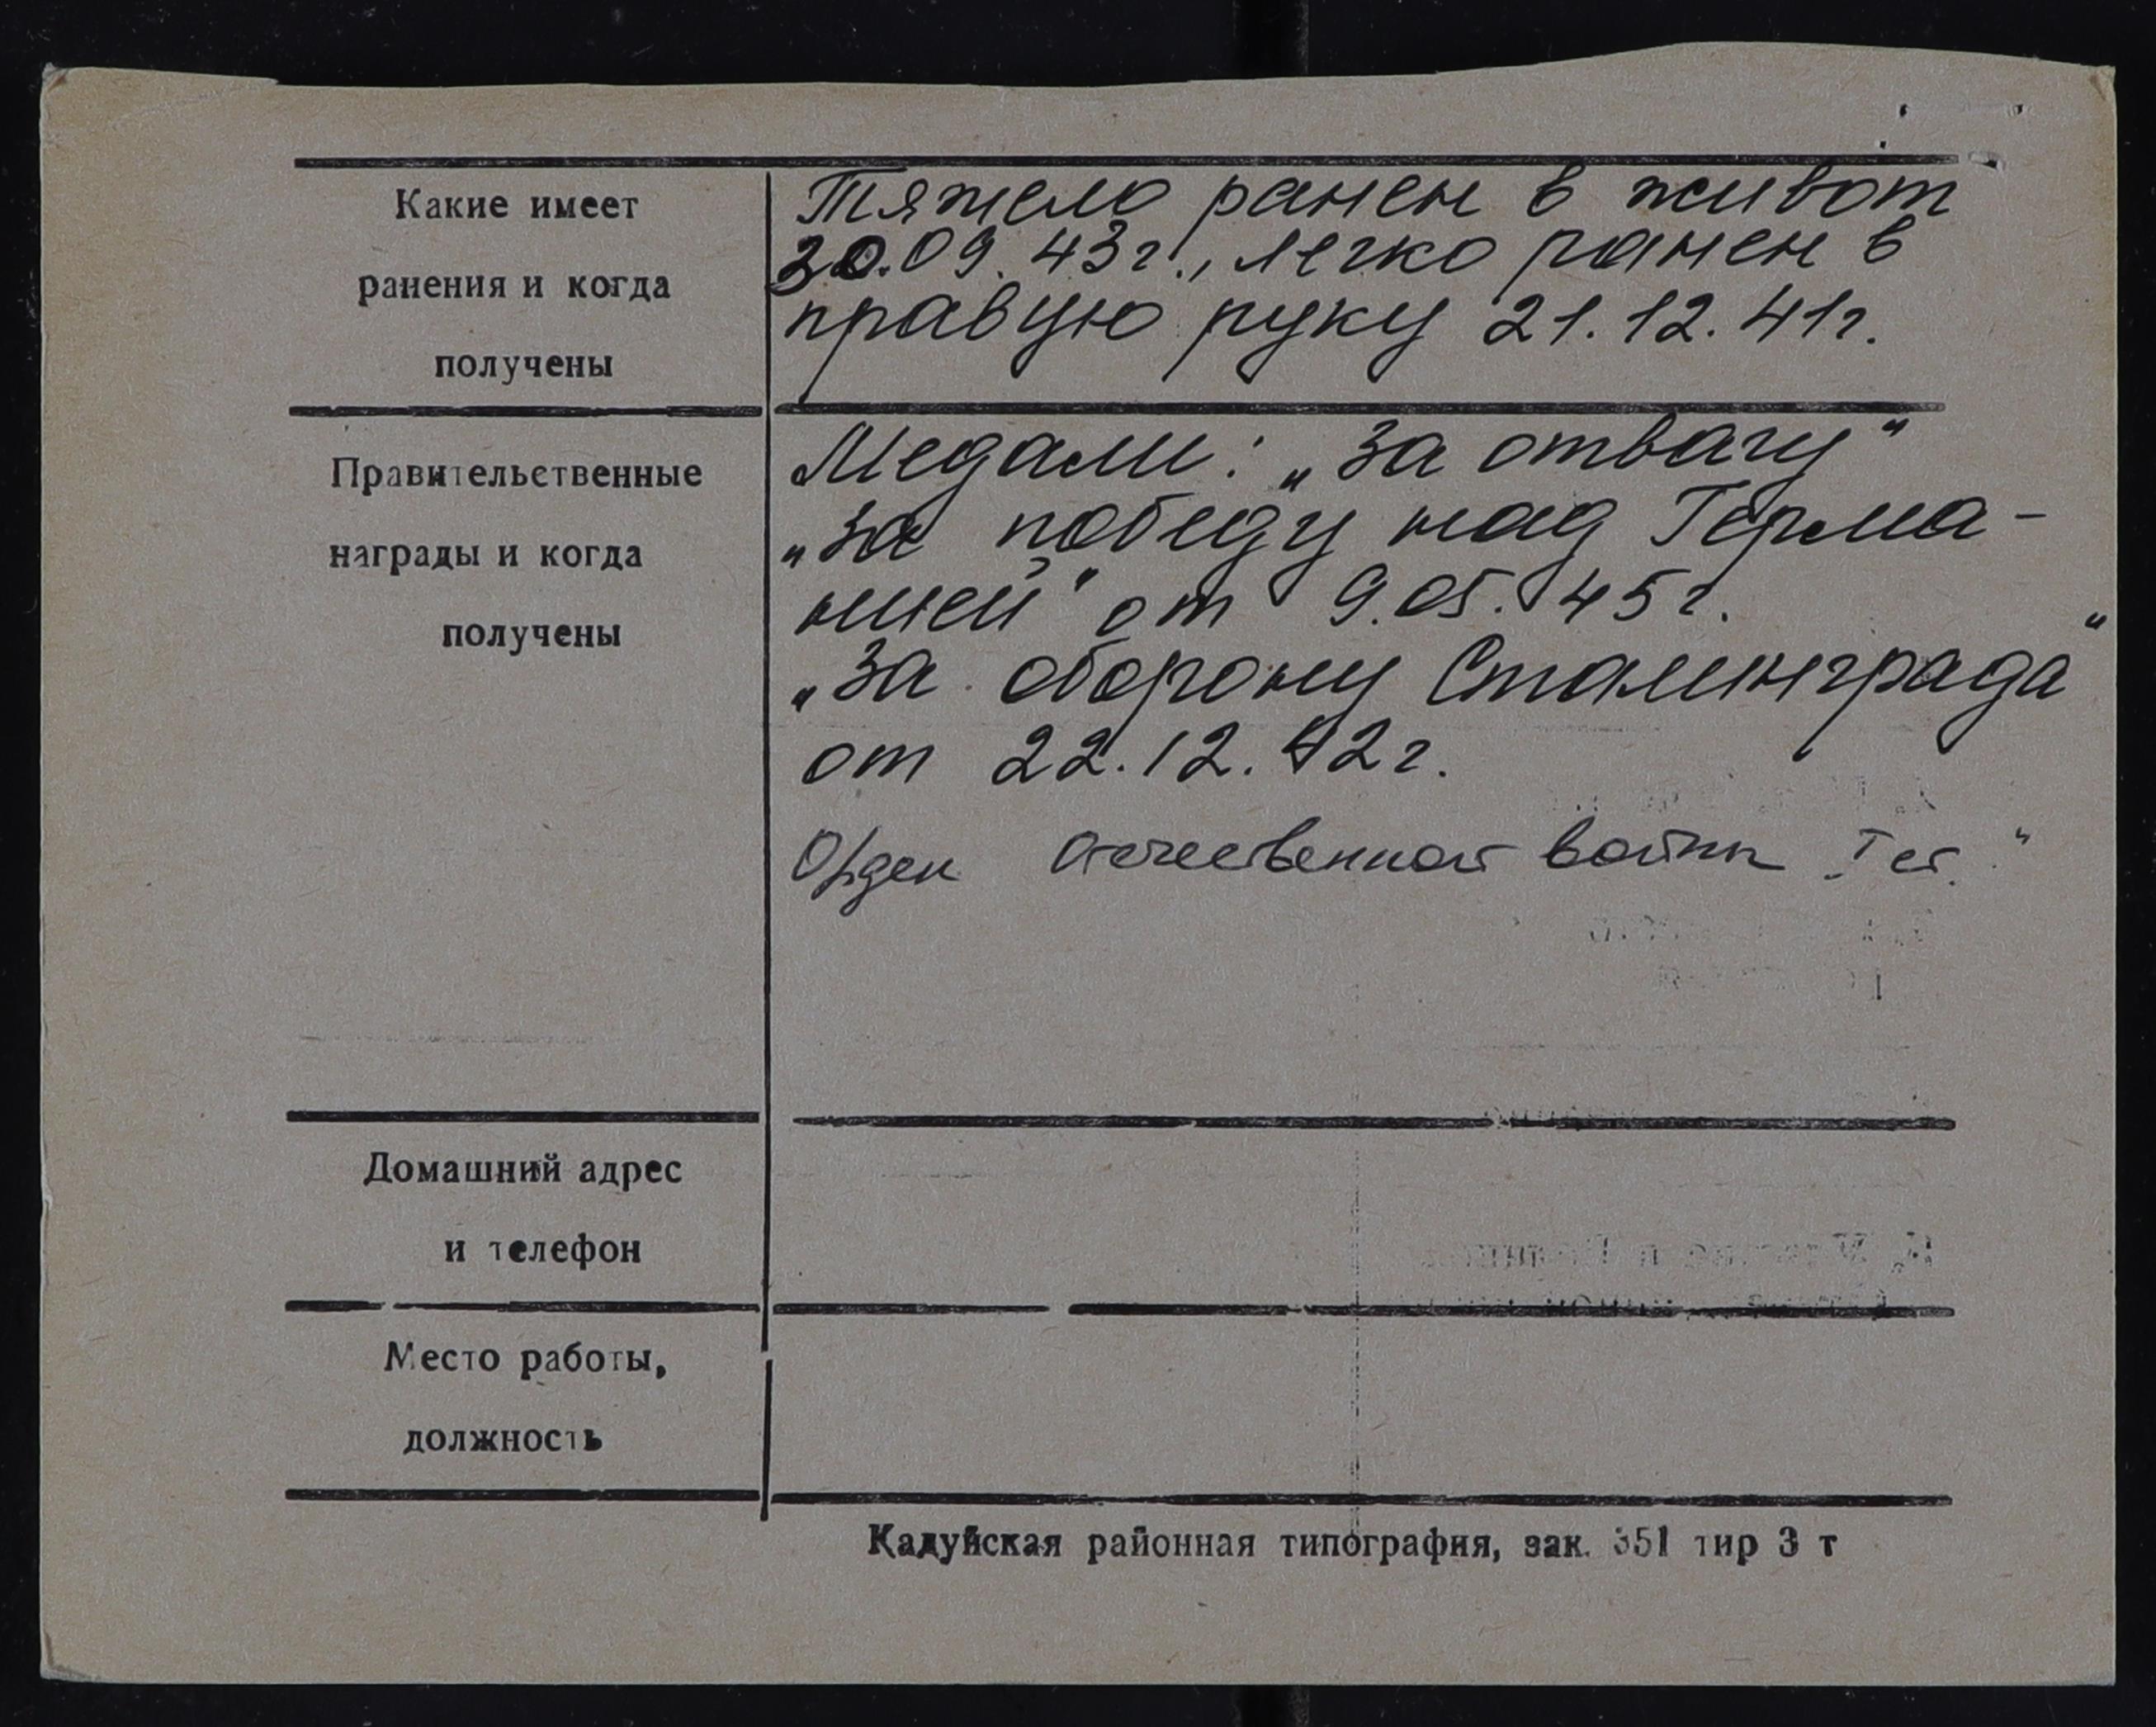 Какие имеет
ранения и когда
получены
Тяжело ранен в живот
30.09.43г., легко ранен в
правую руку 21.12.41г.
Правительственные
награды и когда
получены
Медали: „За отвагу“
„За победу над Герма-
нией“ от 9.05.45г.
„За оборону Сталинграда“
от 22.12.42г.
Орден Отечественной войны „I ст.“
Домашний адрес
и телефон
Место работы,
должность
Кадуйская районная типография, зак. 351 тир 3 т